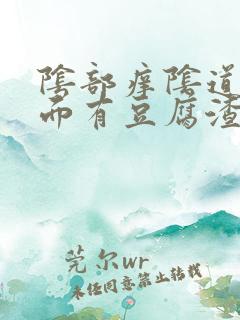 陰部痒陰道
而有豆腐渣
莞尔wr
未经同意禁止转载